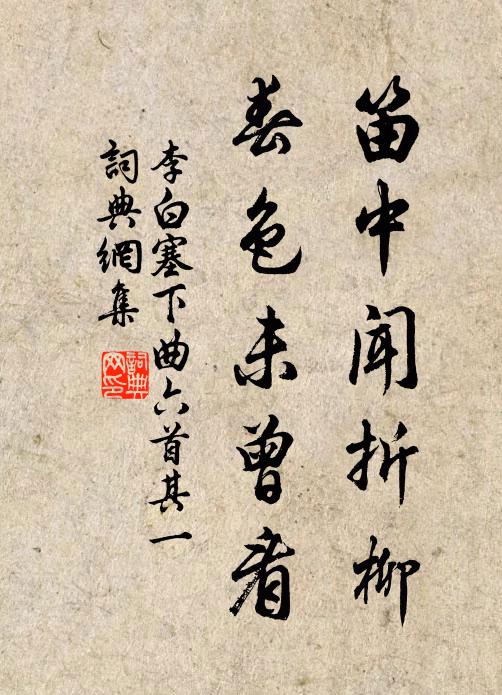 笛中聞折柳
春色未曾看
李白塞下曲六首其一
詞典網集
詞典
网印